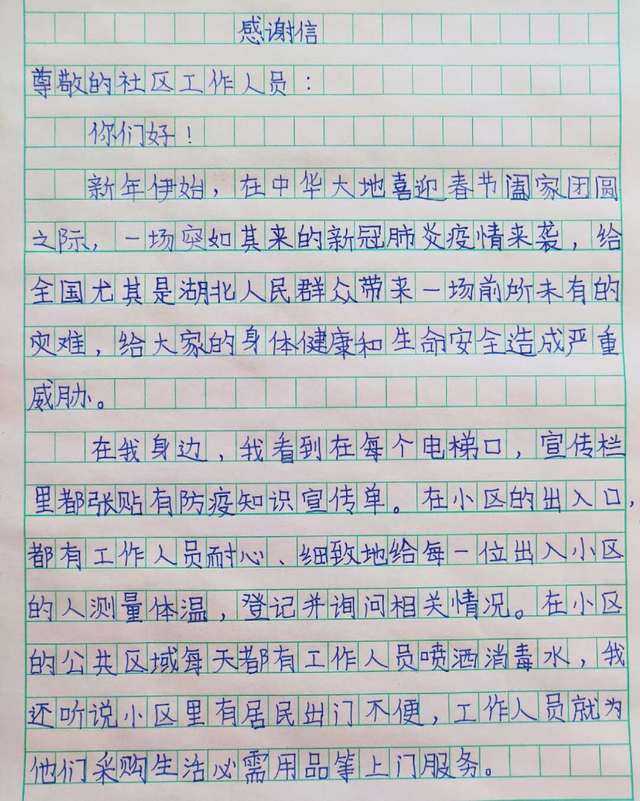 感谢信
尊敬的社区工作人员：
你们好！
新年伊始，在中华大地喜迎春节阖家团圆
之际，一场突如其来的新冠肺炎疫情来袭，给
全国尤其是湖北人民群众带来一场前所未有的
灾难，给大家的身体健康和生命安全造成严重
威胁。
在我身边，我看到在每个电梯口，宣传栏
里都张贴有防疫知识宣传单。在小区的出入口，
都有工作人员耐心、细致地给每一位出入小区
的人测量体温，登记并询问相关情况。在小区
的公共区域每天都有工作人员喷洒消毒水，我
还听说小区里有居民出门不便，工作人员就为
他们采购生活必需用品等上门服务。